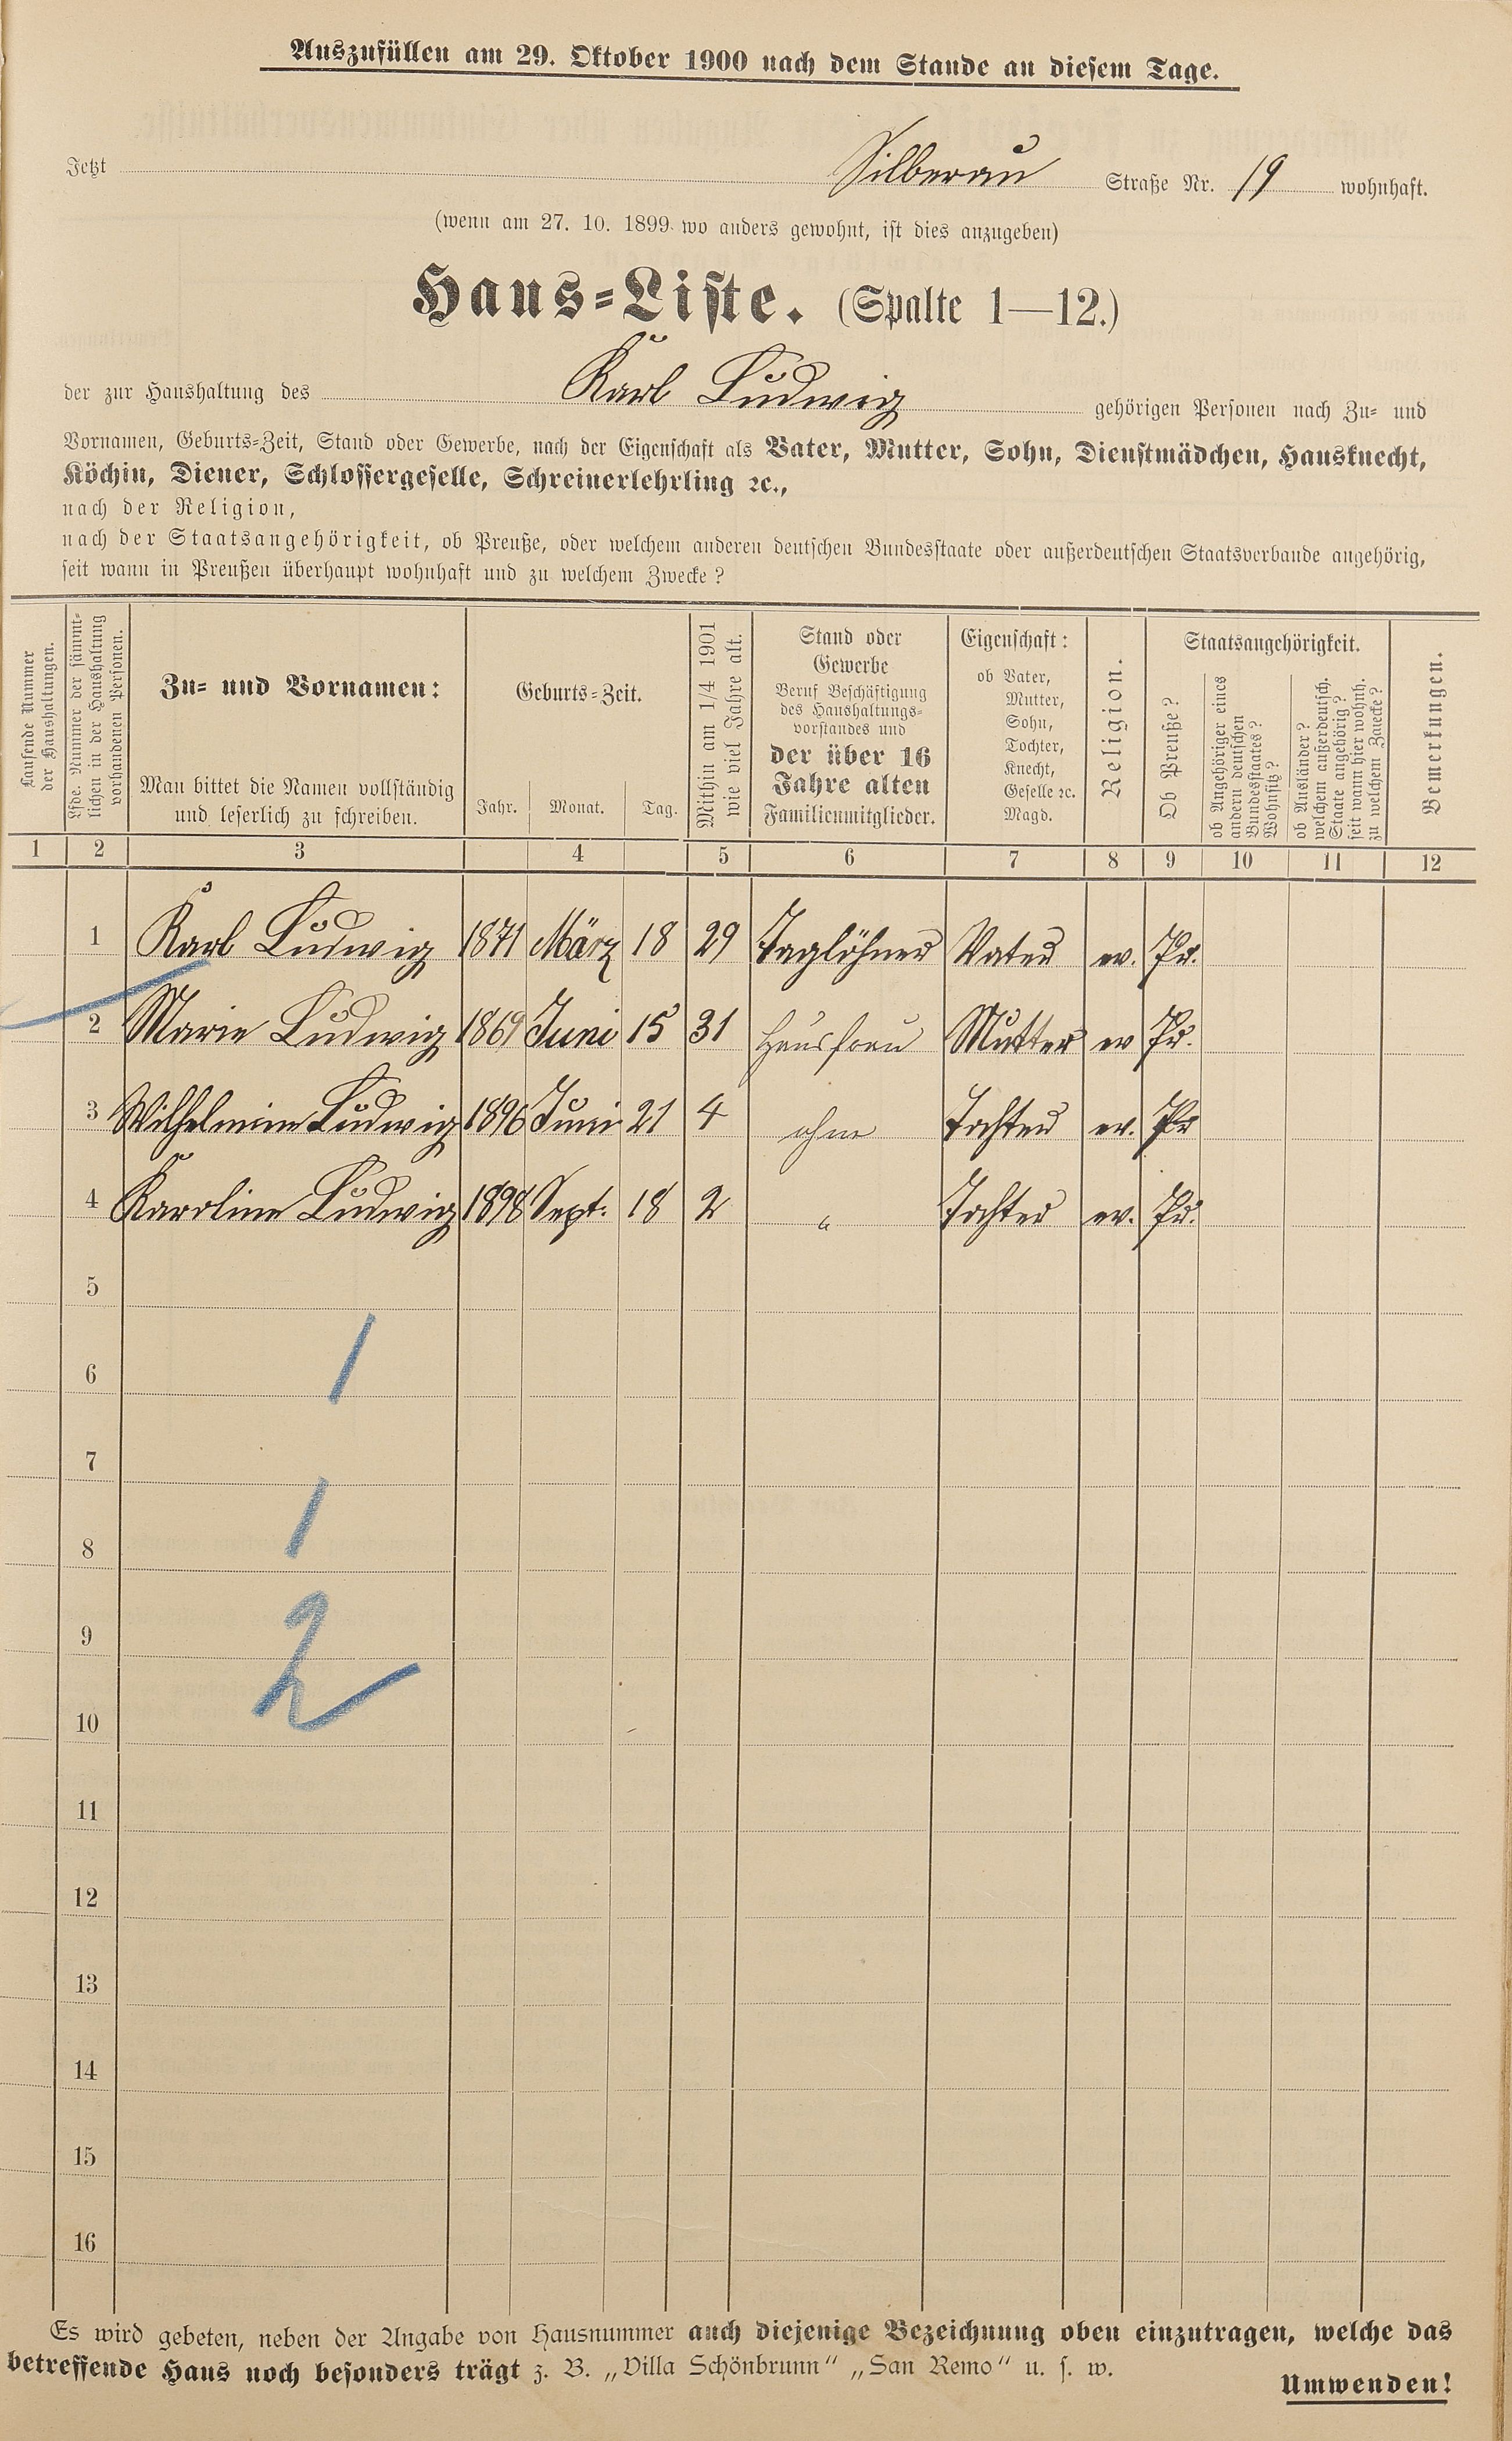 Auszufüllen am 29. Oktober 1900 nach dem Stande an diesem Tage.
Jetzt Silberau Straße Nr. 19 wohnhaft.
(wenn am 27. 10. 1899 wo anders gewohnt, ist dies anzugeben)
Haus-Liste. (Spalte 1—12.)
der zur Haushaltung des Karl Ludwig gehörigen Personen nach Zu- und
Vornamen, Geburts-Zeit, Stand oder Gewerbe, nach der Eigenschaft als Vater, Mutter, Sohn, Dienstmädchen, Hausknecht,
Köchin, Diener, Schlossergeselle, Schreinerlehrling ꝛc.,
nach der Religion,
nach der Staatsangehörigkeit, ob Preuße, oder welchem anderen deutschen Bundesstaate oder außerdeutschen Staatsverbande angehörig,
seit wann in Preußen überhaupt wohnhaft und zu welchem Zwecke?
Laufende Nummer
der Haushaltungen.
Lfde. Nummer der sämmt-
lichen in der Haushaltung
vorhandenen Personen.
Zu- und Vornamen:
Man bittet die Namen vollständig
und leserlich zu schreiben.
Geburts-Zeit.
Jahr. Monat. Tag.
Mithin am 1/4 1901
wie viel Jahre alt.
Stand oder
Gewerbe
Beruf Beschäftigung
des Haushaltungs-
vorstandes und
der über 16
Jahre alten
Familienmitglieder.
Eigenschaft:
ob Vater,
Mutter,
Sohn,
Tochter,
Knecht,
Geselle ꝛc.
Magd.
Religion.
Staatsangehörigkeit.
Ob Preuße?
ob Angehöriger eines
andern deutschen
Bundesstaates?
Wohnsitz?
ob Ausländer?
welchem außerdeutsch.
Staate angehörig?
seit wann hier wohnh.
zu welchem Zwecke?
Bemerkungen.
1 2 3 4 5 6 7 8 9 10 11 12
1 Karl Ludwig 1871 März 18 29 Taglöhner Vater ev. Pr.
2 Marie Ludwig 1869 Juni 15 31 Hausfrau Mutter ev Pr.
3 Wilhelmine Ludwig 1896 Juni 21 4 ohne Tochter ev. Pr
4 Karoline Ludwig 1898 Sept. 18 2 " Tochter ev. Pr.
5
1
6
7
1
8
9
2
10
11
12
13
14
15
16
Es wird gebeten, neben der Angabe von Hausnummer auch diejenige Bezeichnung oben einzutragen, welche das
betreffende Haus noch besonders trägt z. B. „Villa Schönbrunn“ „San Remo“ u. s. w.
Umwenden!